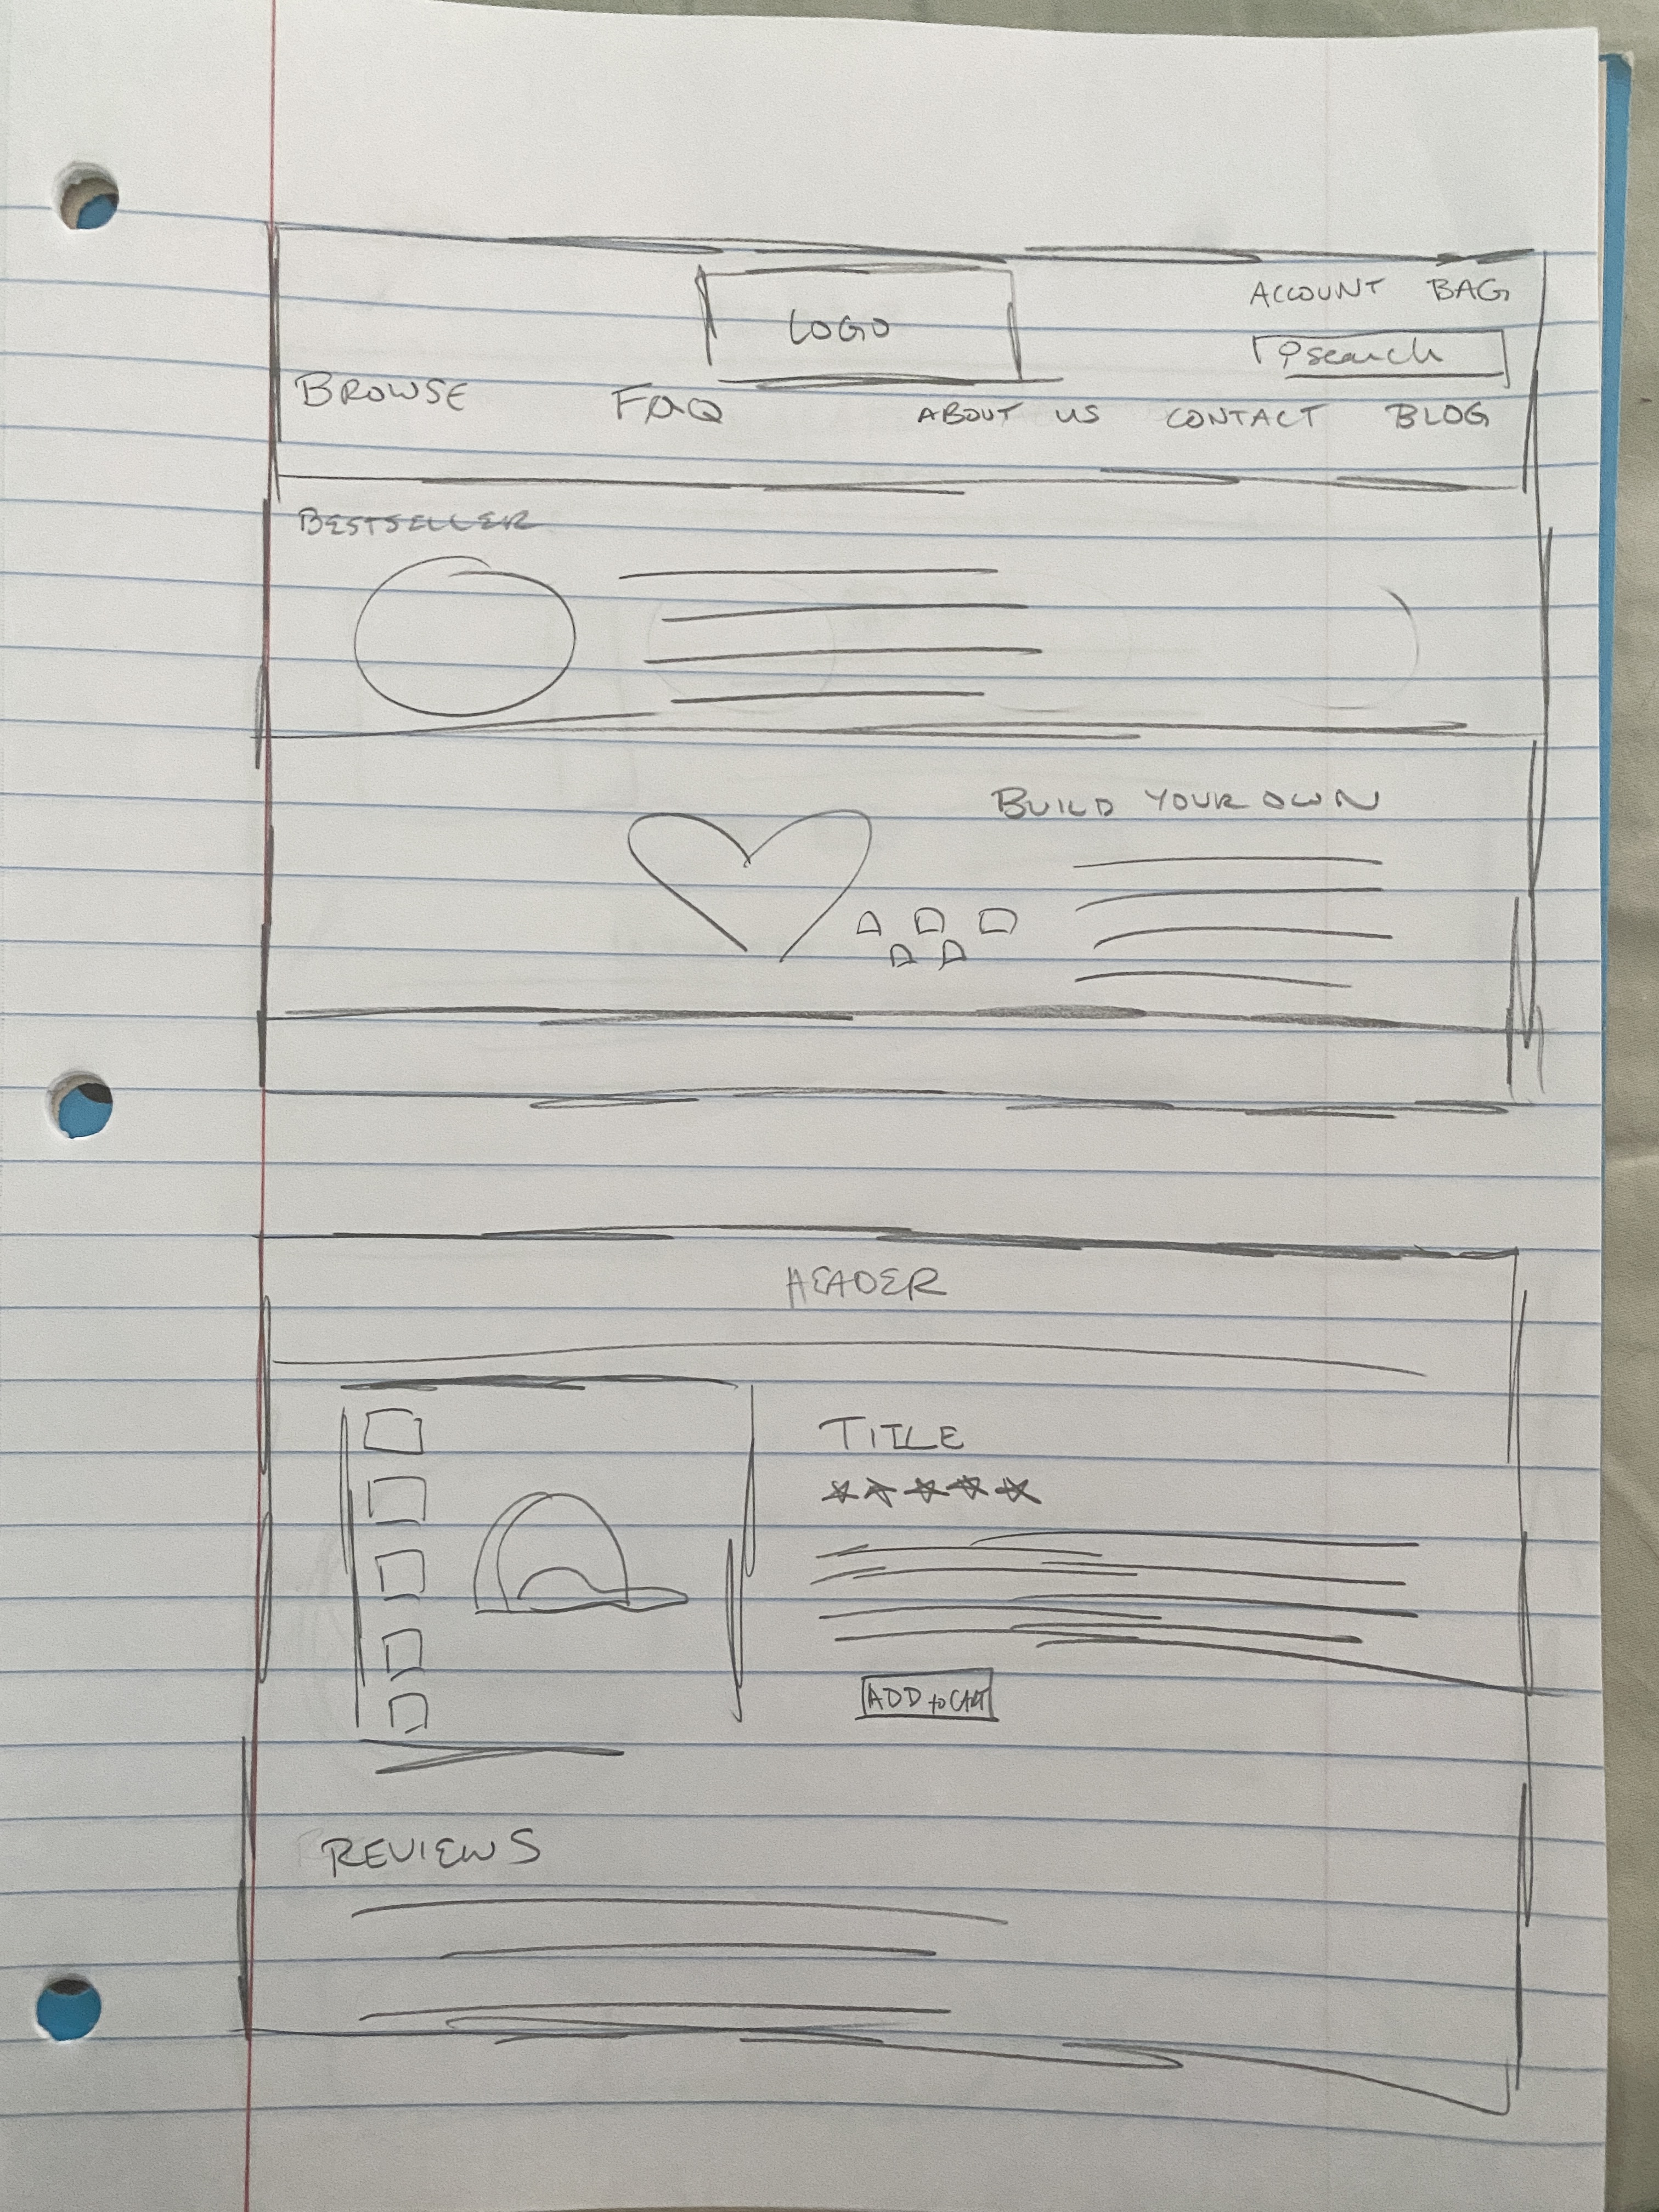 ACCOUNT BAG
LOGO
search
BROWSE FAQ ABOUT US CONTACT BLOG
BESTSELLER
BUILD YOUR OWN
HEADER
TITLE
ADD to CART
REVIEWS